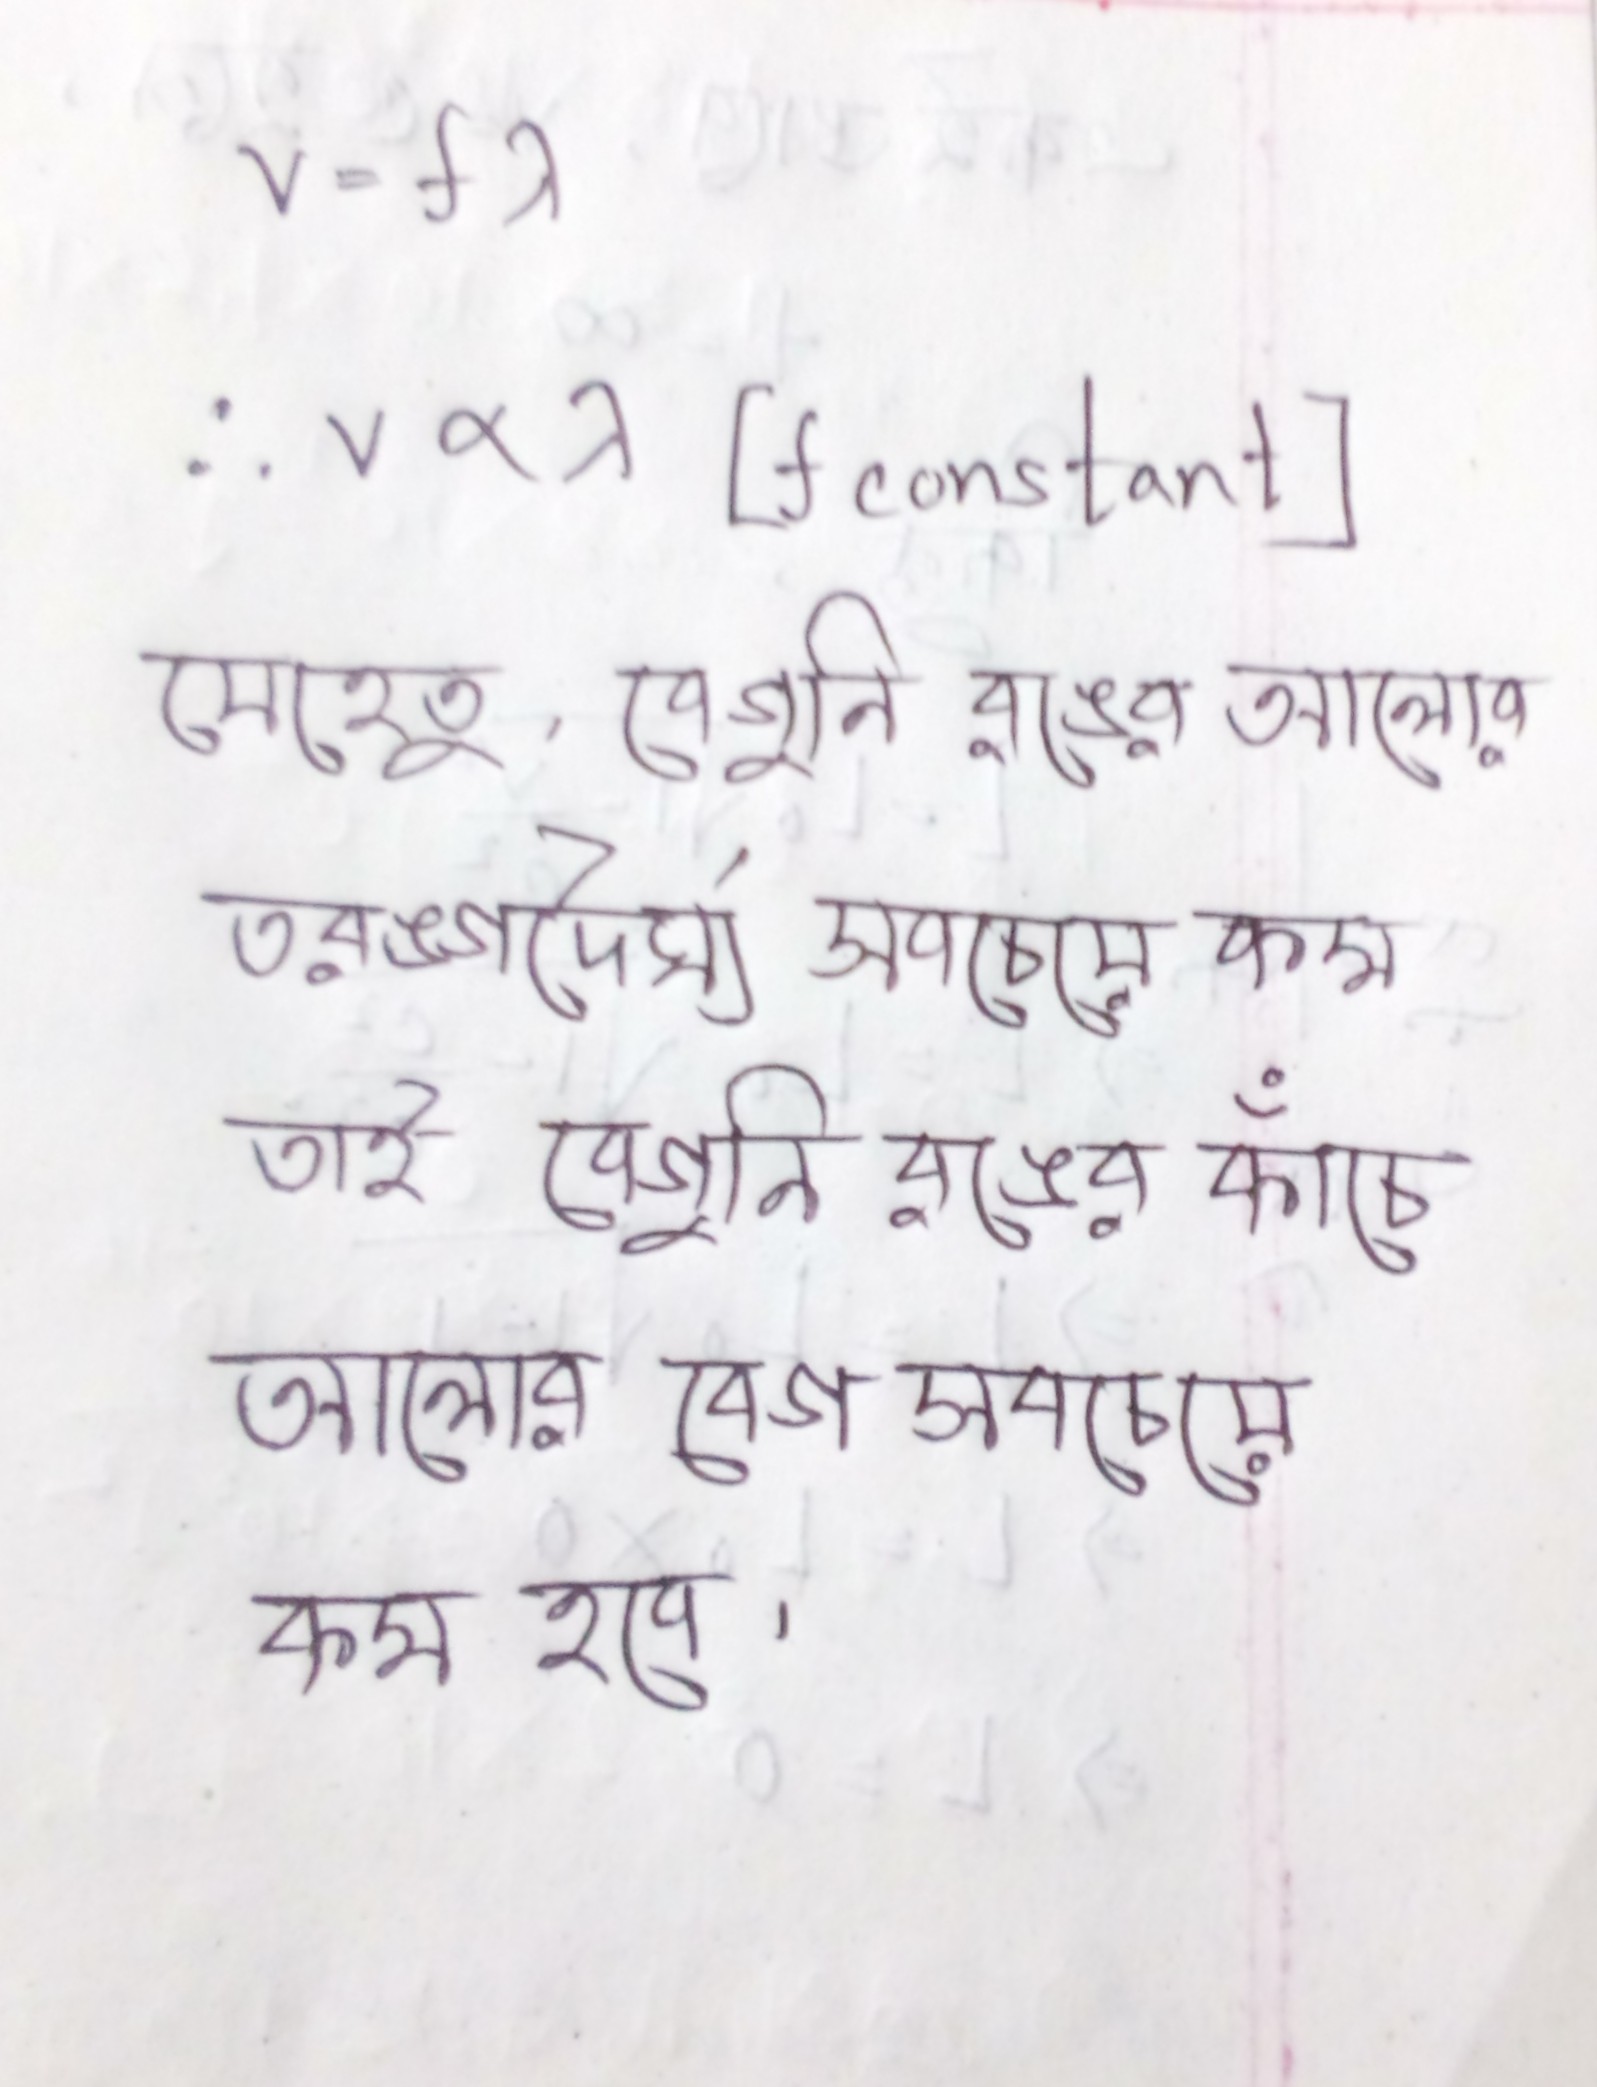 v = fλ
∴ v ∝ λ [f constant]
যেহেতু, বেগুনি রঙের আলোর
তরঙ্গদৈর্ঘ্য সবচেয়ে কম
তাই বেগুনি রঙের কাঁচে
আলোর বেগ সবচেয়ে
কম হবে।